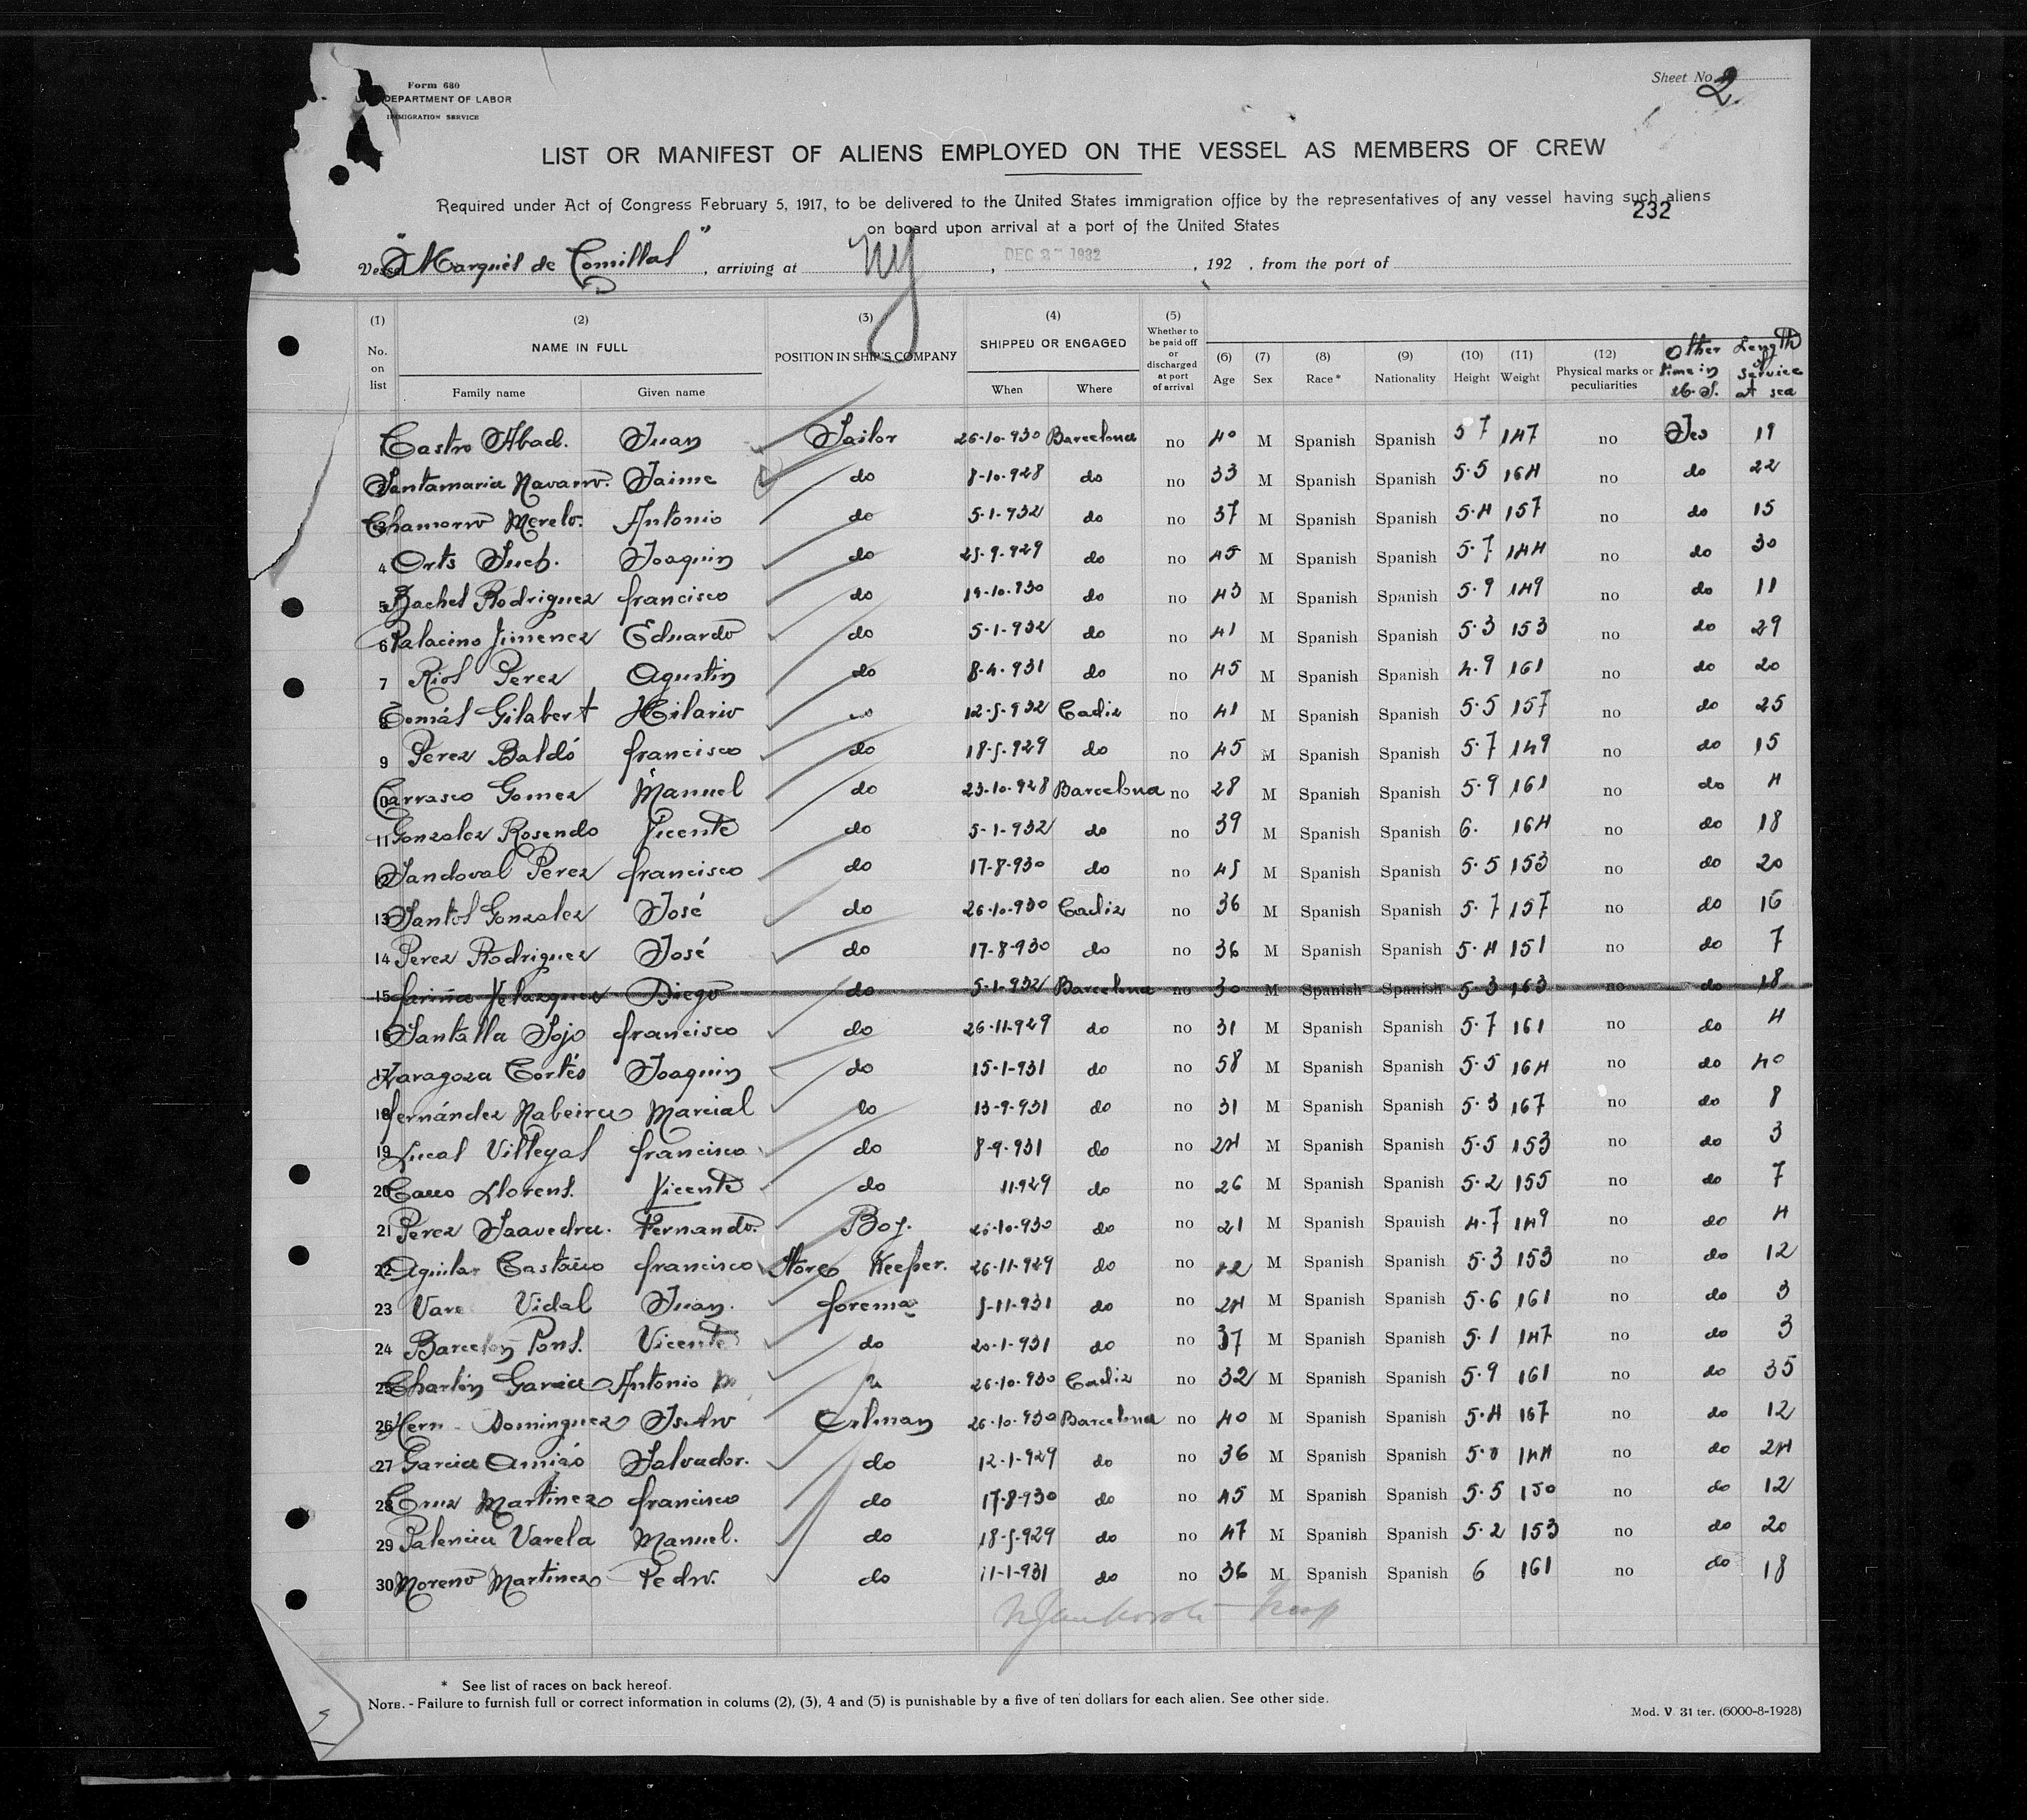 Form 680
DEPARTMENT OF LABOR
IMMIGRATION SERVICE
Sheet No. 2
LIST OR MANIFEST OF ALIENS EMPLOYED ON THE VESSEL AS MEMBERS OF CREW
Required under Act of Congress February 5, 1917, to be delivered to the United States immigration office by the representatives of any vessel having such aliens
232
on board upon arrival at a port of the United States
Vessel "Marqués de Comillas", arriving at NY, DEC 1932, 192 , from the port of
(1) (2) (3) (4) (5)
No. on list NAME IN FULL POSITION IN SHIP'S COMPANY SHIPPED OR ENGAGED Whether to be paid off or discharged at port of arrival (6) Age (7) Sex (8) Race * (9) Nationality (10) Height (11) Weight (12) Physical marks or peculiarities Other time in U. S. Length of service at sea
Family name Given name When Where
1 Castro Abad. Juan Sailor 26-10-930 Barcelona no 40 M Spanish Spanish 5 7 147 no Yes 19
2 Santamaria Navarro. Jaime do 8-10-928 do no 33 M Spanish Spanish 5.5 164 no do 22
3 Chamorro Merelo. Antonio do 5-1-932 do no 37 M Spanish Spanish 5.4 157 no do 15
4 Orts Such. Joaquin do 25-9-929 do no 45 M Spanish Spanish 5.7 144 no do 30
5 Bachet Rodriguez francisco do 19-10-930 do no 43 M Spanish Spanish 5.9 149 no do 11
6 Palacino Jimenez Eduardo do 5-1-932 do no 41 M Spanish Spanish 5.3 153 no do 29
7 Rios Perez Agustin do 8-4-931 do no 45 M Spanish Spanish 4.9 161 no do 20
8 Tomás Gilabert Hilario do 12-5-932 Cadiz no 41 M Spanish Spanish 5.5 157 no do 25
9 Perez Baldó francisco do 18-5-929 do no 45 M Spanish Spanish 5.7 149 no do 15
10 Carrasco Gomez Manuel do 23-10-928 Barcelona no 28 M Spanish Spanish 5.9 161 no do 4
11 Gonzalez Rosendo Vicente do 5-1-932 do no 39 M Spanish Spanish 6. 164 no do 18
12 Sandoval Perez francisco do 17-8-930 do no 45 M Spanish Spanish 5.5 153 no do 20
13 Santos Gonzalez José do 26-10-930 Cadiz no 36 M Spanish Spanish 5.7 157 no do 16
14 Perez Rodriguez José do 17-8-930 do no 36 M Spanish Spanish 5.4 151 no do 7
15 fariña Velazquez Diego do 5-1-932 Barcelona no 30 M Spanish Spanish 5.3 163 no do 18
16 Santalla Sojo francisco do 26-11-929 do no 31 M Spanish Spanish 5.7 161 no do 4
17 Zaragoza Cortés Joaquin do 15-1-931 do no 58 M Spanish Spanish 5.5 164 no do 40
18 fernández Nabeiras Marcial do 13-9-931 do no 31 M Spanish Spanish 5.3 167 no do 8
19 Lucas Villegas francisco do 8-9-931 do no 24 M Spanish Spanish 5.5 153 no do 3
20 Llorens. Vicente do 11-929 do no 26 M Spanish Spanish 5.2 155 no do 7
21 Perez Saavedra. Fernando. Boy. 26-10-930 do no 21 M Spanish Spanish 4.7 149 no do 4
22 Aguilar Castaño francisco Store Keeper. 26-11-929 do no 42 M Spanish Spanish 5.3 153 no do 12
23 Vidal Juan. forema 5-11-931 do no 24 M Spanish Spanish 5.6 161 no do 3
24 Pons. Vicente do 20-1-931 do no 37 M Spanish Spanish 5.1 147 no do 3
25 Charlón Garcia Antonio 26-10-930 Cadiz no 32 M Spanish Spanish 5.9 161 no do 35
26 Hern Dominguez Isidro Oilman 26-10-930 Barcelona no 40 M Spanish Spanish 5.4 167 no do 12
27 Garcia Amigó Salvador. do 12-1-929 do no 36 M Spanish Spanish 5.0 144 no do 24
28 Cruz Martinez francisco do 17-8-930 do no 45 M Spanish Spanish 5.5 150 no do 12
29 Palencia Varela Manuel. do 18-5-929 do no 47 M Spanish Spanish 5.2 153 no do 20
30 Moreno Martinez Pedro. do 11-1-931 do no 36 M Spanish Spanish 6 161 no do 18
* See list of races on back hereof.
NOTE. - Failure to furnish full or correct information in colums (2), (3), 4 and (5) is punishable by a five of ten dollars for each alien. See other side.
Mod. V 31 ter. (6000-8-1928)